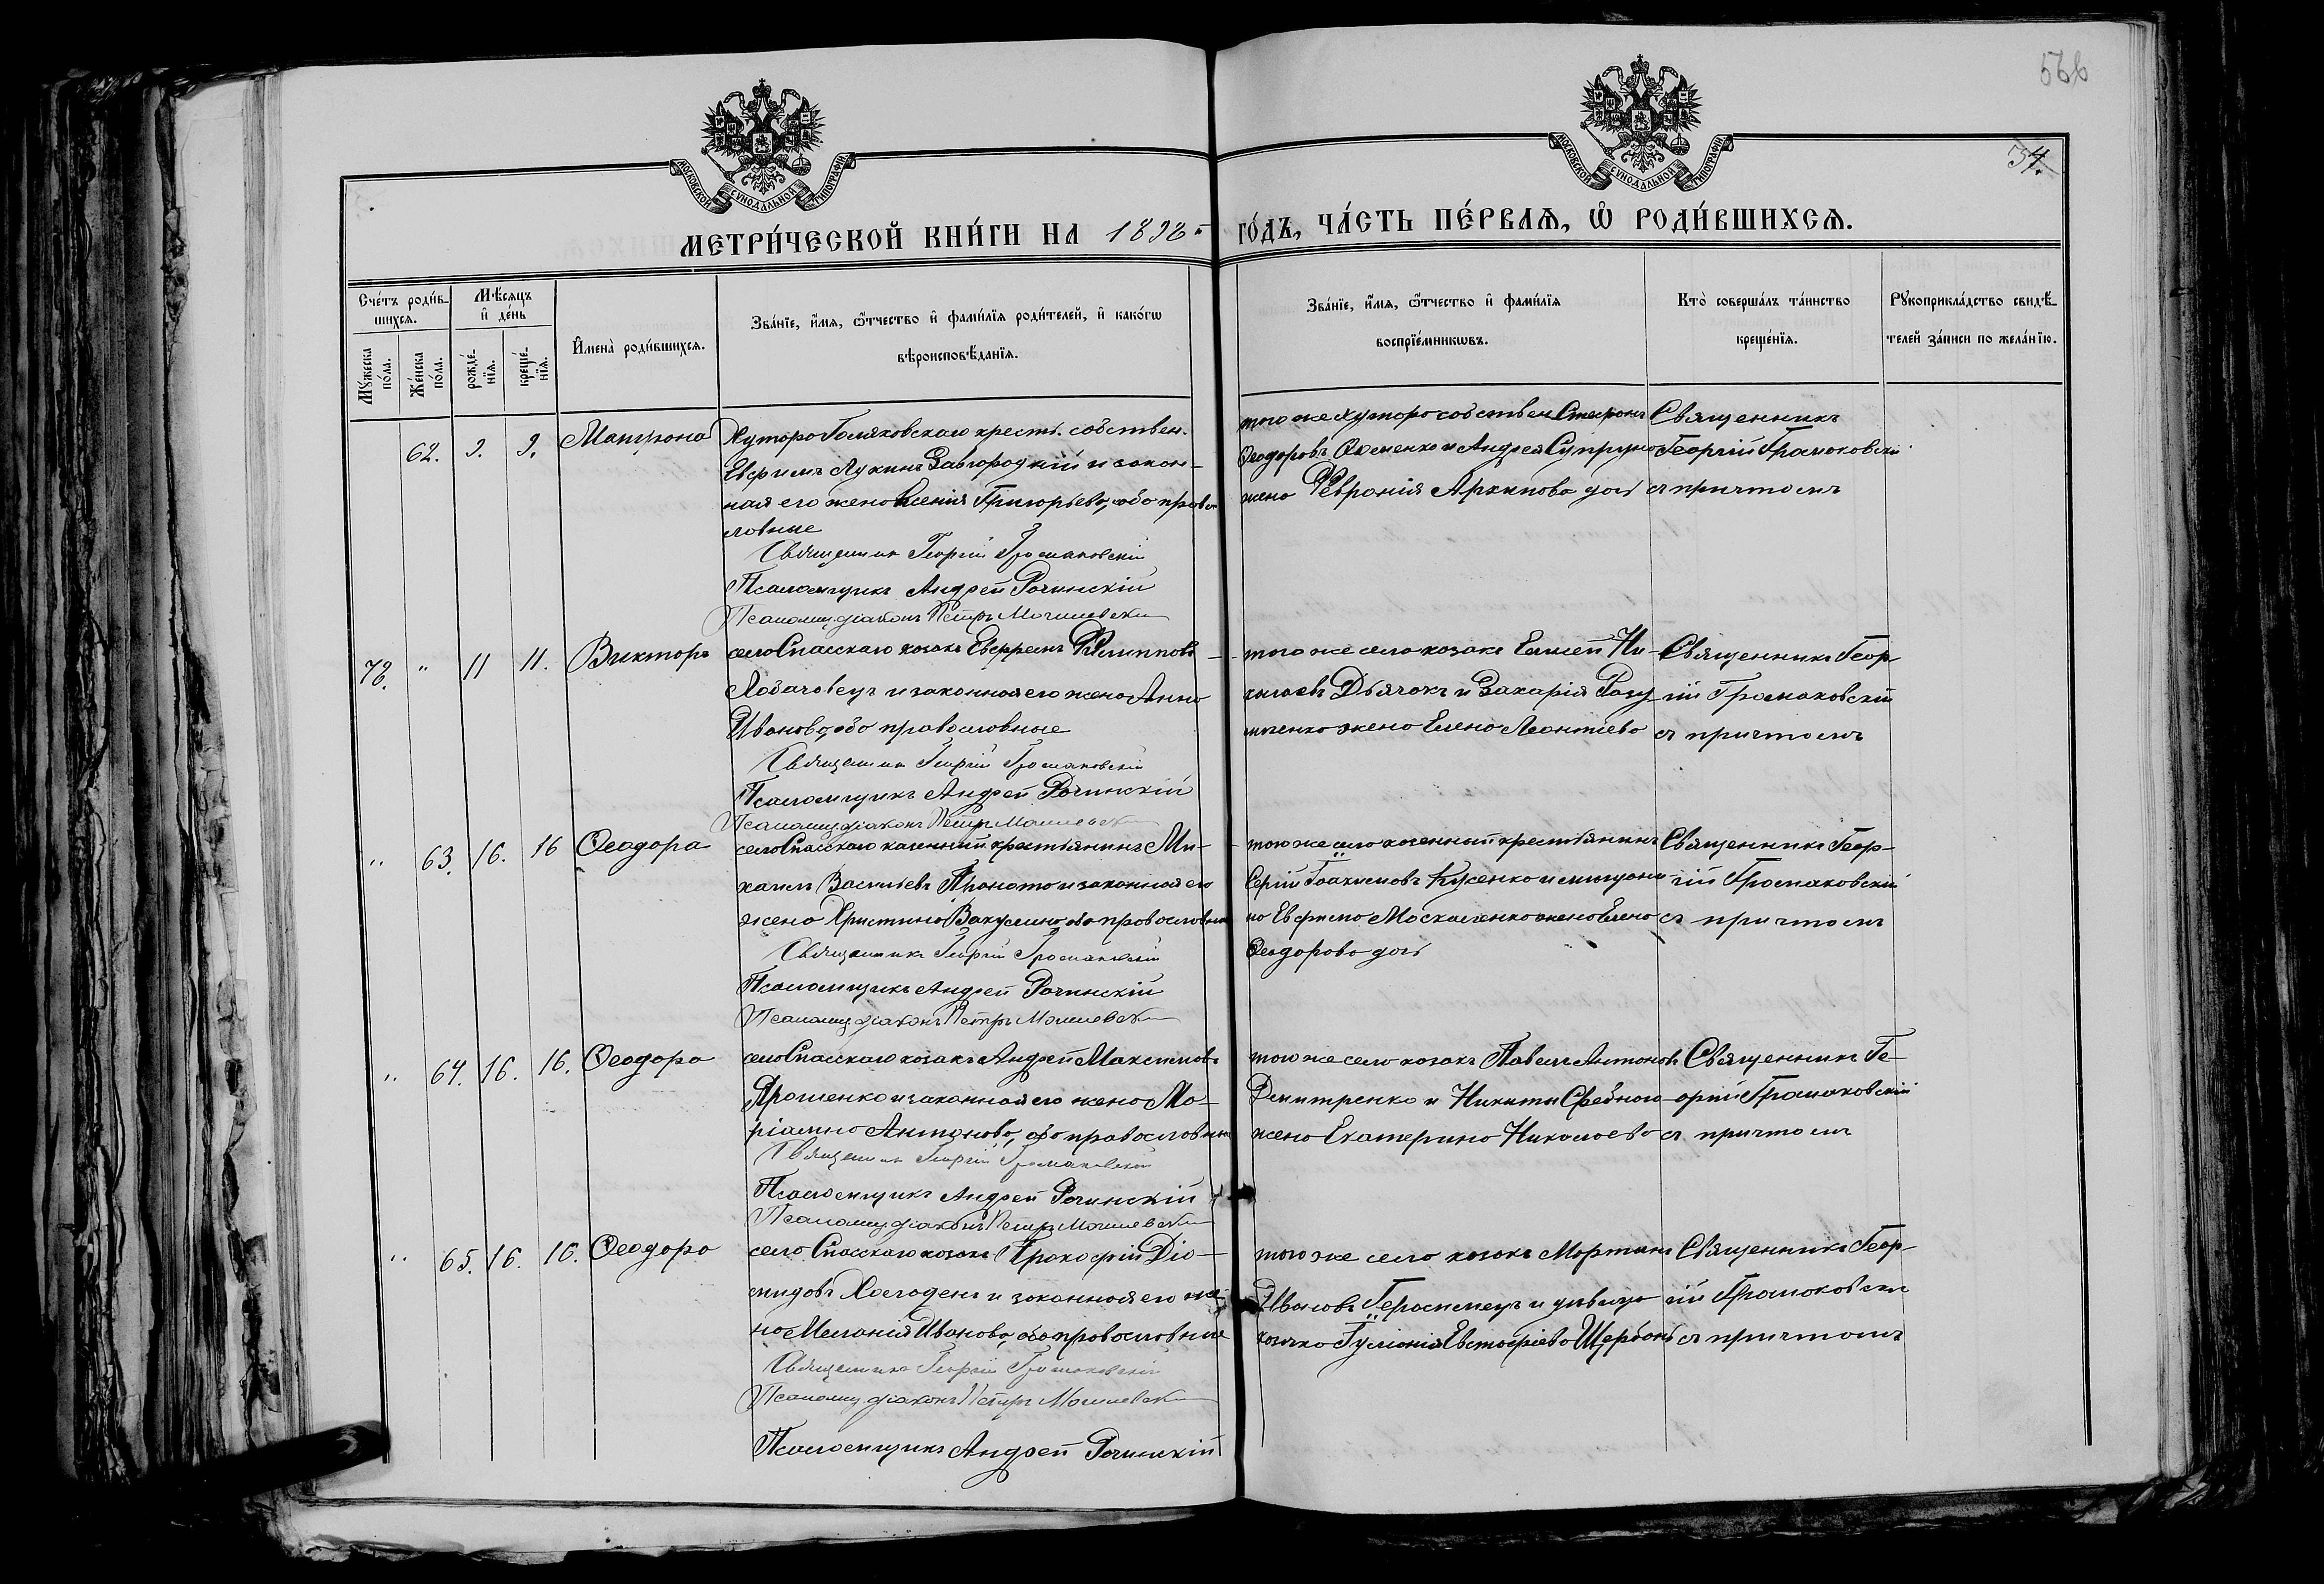 566
54.
МОСКОВСКОЙ СѴНОДАЛЬНОЙ ТИПОГРАФІИ
МОСКОВСКОЙ СѴНОДАЛЬНОЙ ТИПОГРАФІИ
МЕТРИ́ЧЕСКОЙ КНИ́ГИ НА 189 ГО́ДЪ, ЧА́СТЬ ПЕ́РВАѦ, Ѡ РОДИ́ВШИХСѦ.
Сче́тъ роди́в-
шихсѧ.
Мѣ́сѧцъ
и҆ де́нь
Мꙋ́жеска по́ла.
Же́нска по́ла.
рожде́-
нїѧ.
креще́-
нїѧ.
И҆мена̀ роди́вшихсѧ.
Зва́нїе, и҆́мѧ, ѻ҆́тчество и҆ фами́лїѧ роди́телей, и҆ како́гѡ
вѣроисповѣ́данїѧ.
Зва́нїе, и҆́мѧ, ѻ҆́тчество и҆ фами́лїѧ
воспрїе́мникѡвъ.
Кто̀ соверша́лъ та́инство
креще́нїѧ.
Рꙋкоприкла́дство свидѣ́-
телей за́писи по жела́нїю.
62. 9. 9. Матрона
Хутора Голяковскаго крест. собствен.
Евфимъ Лукинъ Завгородкій и закон-
ная его жена Ксенія Григорьева, оба право
славные
Священникъ Георгій Громаковскій
Псаломщикъ Андрей Рачинскій
Псаломщ. діаконъ Петръ
того же хутора собствен Стефанъ
Феодоровъ и Андрея Супруна
жена Февронія Архипова дочь
Священникъ
Георгій Громаковскій
съ причтомъ
78. " 11 11. Викторъ
села Спасскаго козакъ Евфремъ Филипповъ
и законная его жена Анна
Иванова, оба православные
Священникъ Георгій Громаковскій
Псаломщикъ Андрей Рачинскій
Псаломщ. діаконъ Петръ
того же села козакъ Елисей Ни-
колаевъ Дьячокъ и Захарія Разу
мненко жена Елена Леонтіева
Священникъ Геор
гій Громаковскій
съ причтомъ
" 63. 16. 16 Феодора
села Спасскаго казенный крестьянинъ Ми-
хаилъ Васильевъ и законная его
жена Христина Вакулина оба православные
Священникъ Георгій Громаковскій
Псаломщикъ Андрей Рачинскій
Псаломщ. діаконъ Петръ
того же села казенный крестьянинъ
Сергій Іоакимовъ Куценко и мещани
на Евфима Москаленко жена Елена
Феодорова дочь
Священникъ Геор-
гій Громаковскій
съ причтомъ
" 64. 16. 16. Феодора
села Спасскаго козакъ Андрей Максимовъ
Ярошенко и законная его жена Ма-
ріамна Антонова, оба православные
Священникъ Георгій Громаковскій
Псаломщикъ Андрей Рачинскій
Псаломщ. діаконъ Петръ
того же села козакъ Павелъ Антоновъ
Дмитренко и Никиты
жена Екатерина Николаева
Священникъ Ге-
оргій Громаковскій
съ причтомъ
" 65. 16. 16. Феодора
села Спасскаго козакъ Прокофій Діо-
мидовъ Холоденъ и законная его же-
на Меланія Иванова, оба православные
Священникъ Георгій Громаковскій
Псаломщ. діаконъ Петръ
Псаломщикъ Андрей Рачинскій
того же села козакъ Мартинъ
Ивановъ Герасимецъ и девица
козачка Іуліанія Евстафіева Щербакъ
Священникъ Геор-
гій Громаковскій
съ причтомъ